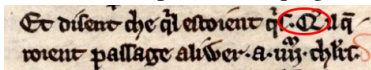 Et disent che ql estoient q̄ .C. Q̄l q̄
roient passage aliuer .a. iiij. chlr̄s.